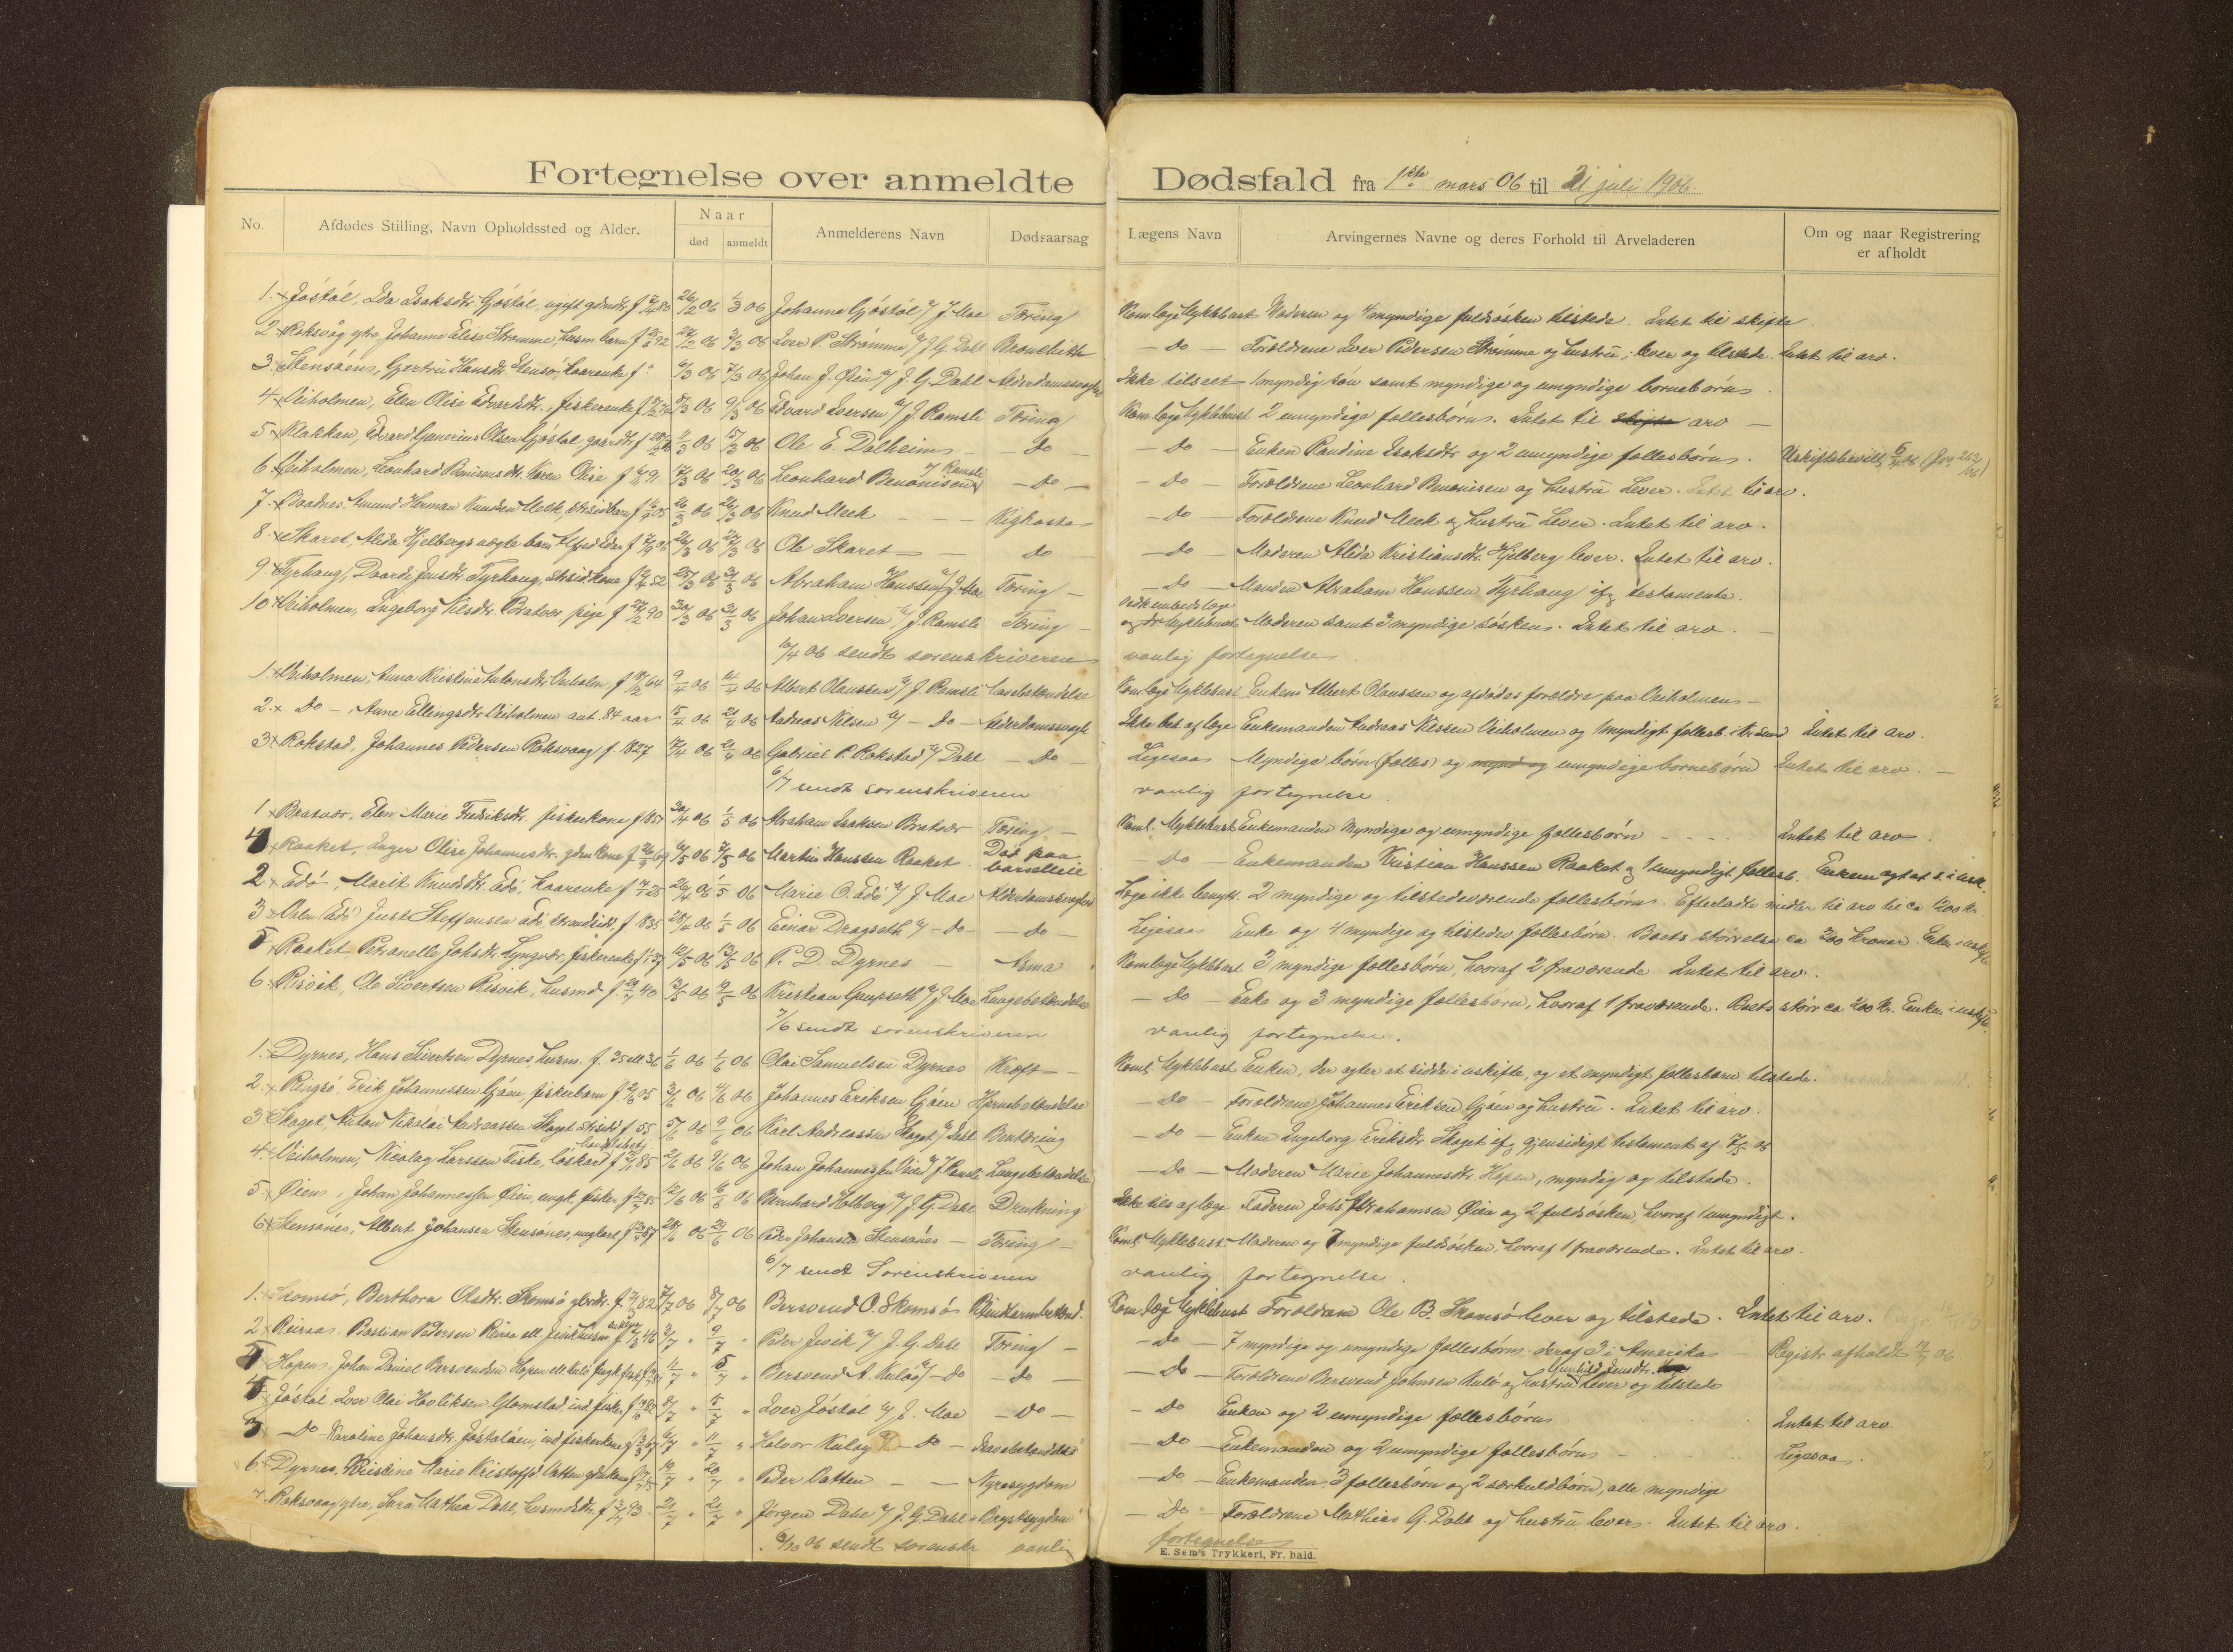 Fortegnelse over anmeldte Dødsfald fra 1ste mars 06 til 21 juli 1906.
No. Afdødes Stilling, Navn Opholdssted og Alder. Naar død anmeldt Anmelderens Navn Dødsaarsag Lægens Navn Arvingernes Navne og deres Forhold til Arveladeren Om og naar Registrering er afholdt
1. Jøstøl, Ida Isaksdtr. Gjøstøl, ugift gdmdtr. f 80 26/2 06 1/3 06 Johanna Gjøstøl v/ J. Moe Tæring Kom.læge Myklebust Moderen og 4 myndige fuldsøsken tilstede. Intet til skifte
2 Roksvåg ytre Johanna Elise Strømme, husm. barn f 92 27/2 06 2/3 06 Iver P. Strømme v/ J. G. Dahl Bronchitt - Do - Forældrene Iver Pedersen Strømme og hustru, lever og tilstede. Intet til arv.
3. Stensøens, Gjertru Hansdtr. Stensø, kaarenke f. 6/3 06 7/3 06 Johan J. Øien v/ J. G. Dahl Alderdomssvaghed Ikke tilseet 1 myndig søn samt myndige og umyndige børnebørn.
4 Veiholmen, Elen Olise Edvardsdtr., fiskerenke f 8/3 06 9/3 06 Edvard Iversen v/ J. Ramsli Tæring Kom læge Myklebust 2 umyndige fællesbørn. Intet til skifte arv -
5 Klakken, Edvard Gunerius Olsen Gjøstøl gaardbr. f 11/3 06 15/3 06 Ole E. Dalheim - Do - - Do - Enken Pauline Isaksdtr og 2 umyndige fællesbørn. Uskiftebevill. 5/4 06
6 Veiholmen, Leonhard Benonisens dtr. Karen Olise f 91 17/3 06 20/3 06 Leonhard Benonisen v/ Ramsli - Do - - Do - Forældrene Leonhard Benonisen og hustru Lever. Intet til arv.
7. Bordnes. Amund Herman Knudsen Meek, strsid.barn f 05 26/3 06 26/3 06 Knud Meek Kighoste - Do - Forældrene Knud Meek og hustru Lever. Intet til arv.
8. Skaret, Alida Hjelbergs uægte barn Alfred Edv. f 05 26/3 06 27/3 06 Ole Skaret - do - Do - Moderen Alida Kristiansdtr. Hjelberg lever. Intet til arv.
9. Tyrhaug, Daardi Jensdtr Tyrhaug, strsidkone f 52 25/3 06 31/3 06 Abraham Hanssen v/ J. Moe Tæring - Do - Manden Abraham Hanssen Tyrhaug ifg testamente.
10 Veiholmen, Ingeborg Nilsdtr. Bratvær pige f 90 30/3 06 31/3 06 Johan Iversen v/ J. Ramsli Tæring - og dr Myklebust Moderen samt 3 myndige søsken. Intet til arv. -
10/4 06 sendt sorenskriveren vanlig fortegnelse
1. Veiholmen, Anna Kristine Antonsdtr. Veiholm f 64 9/4 06 14/4 06 Albert Olaussen v/ J. Ramsli Kom læge Myklebust Enkem Albert Olaussen og afdødes forældre paa Veiholmen -
2. Do - Anne Ellingsdtr Veiholmen ant. 84 aar 15/4 06 21/4 06 Andreas Nilsen v/ - Do - Alderdomssvagh Ikke bes af læge Enkemanden Andreas Nilssen Veiholmen og 1 myndigt fællesb. i Kr.sund Intet til arv.
3. Rokstad, Johannes Pedersen Roksvaag f 1827 17/4 06 21/4 06 Gabriel P. Rokstad v/ Dahl - Do - Ligesaa Myndige børn (fælles) og mynd og umyndige børnebørn Intet til arv. -
6/7 sendt sorenskriveren vanlig fortegnelse
1 Bratvær, Elen Marie Fredriksdtr. fiskerkone f 1857 30/4 06 1/5 06 Abraham Isaksen Bratvær Tæring - Koml. Myklebust Enkemanden Myndige og umyndige fællesbørn - - - Intet til arv.
4 Raaket, Inger Olise Johannesdtr. gdm kone f 69 6/5 06 7/5 06 Martin Hanssen Raaket Død paa barselleie - Do - Enkemanden Kristian Hanssen Raaket og 1 umyndigt fællesb. Enkem agt at s. i usk.
2 Edø, Marit Knudsdtr. Edø, kaarenke f 25 26/4 06 1/5 06 Marie O. Edø v/ J. Moe Alderdomssvaghed Læge ikke benytt. 2 myndige og tilstedeværende fællesbørn. Efterladte midler til arv til ca 1200 kr.
3 Just Steffensen Edø strandsidd. f 1835 28/4 06 1/5 06 Einar Dragseth v/ - Do - - Do - Ligesaa Enke og 4 myndige og tilstedev. fællesbørn. Boets størrelse ca 300 kroner. Enken i uskift
5 Raaket Petranelle Johsdtr. Lyngvær, fiskerenke f 37 12/5 06 13/5 06 P. D. Dyrnes - Asma Komlæge Myklebust 3 myndige fællesbørn, hvoraf 2 fraværende. Intet til arv.
6. Risvik, Ole Sivertsen Risvik, husmd f 40 5 06 5 06 Kristian Gaupseth v/ J. Moe Lungebetændelse - Do - Enke og 3 myndige fællesbørn, hvoraf 1 fraværende. Boets størr ca 200 kr. Enken i uskifte.
7/6 sendt sorenskriveren vanlig fortegnelse.
1. Dyrnes, Hans Sivertsen Dyrnes, husm. f. 35 ell 36 1/6 06 1/6 06 Olai Samuelsen Dyrnes Kræft - Koml. Myklebust Enken, der agter at sidde i uskifte, og et myndigt fællesbarn tilstede.
2. Ringsø, Erik Johannessen Gjøen, fiskerbarn f. 05 3/6 06 4/6 06 Johannes Eriksen Gjøen Hjernebetændelse - Do - Forældrene Johannes Eriksen Gjøen og hustru. Intet til arv.
3 Skaget, Anton Nikolai Andreassen Skaget strsidd f 55 5/6 06 9/6 06 Karl Andreassen Skaget v/ Dahl Bentæring - Do - Enken Ingeborg Eriksdtr. Skaget ifg gjensidigt testament af 7/5 06
4. Veiholmen, Nicolay Larssen Fiske, løskarl f 85 2/6 06 9/6 06 Johan Johannessen v/ J. Ramsli Lungebetændelse - Do - Moderen Marie Johannesdtr. Hopen, myndig og tilstede.
5. Øien, Johan Johannessen Øien, ungk. fisker f 85 12/6 06 16/6 06 Bernhard Holberg v/ J. G. Dahl Drukning Ikke tils af læge Faderen Johs Abrahamsen Øien og 2 fuldsøsken, hvoraf 1 umyndigt.
6 Stensønes, Albert Johansen Stensønes, ungkarl f 87 28/6 06 29/6 06 Peder Johansen Stensønes - Tæring - Koml. Myklebust. Moderen og 7 myndige fuldsøsken, hvoraf 1 fraværende. Intet til arv.
6/7 sendt Sorenskriveren vanlig fortegnelse.
1. Skomsø, Berthora Olsdtr. Skomsø gbrdtr. f. 82 7/7 06 8/7 06 Bersvend O. Skomsø Blindtarmbetænd. Kom. læg Myklebust Forældrene Ole B. Skomsø lever og tilstede. Intet til arv.
2 Reiraa. Bastian Pedersen Reiraa ell. Jevik husm f 46 3/7 9/7 " Peder Jevik v/ J. G. Dahl Tæring - - Do - 7 myndige og umyndige fællesbørn, deraf 3 i Amerika - Registr afholdt 06
Hopen, Johan Daniel Bersvendsen Hopen ell. Kulø 11/7 " 15/7 " Bersvend A. Kulø v/ - Do - Do - - Do - Forældrene Bersvend Johnsen Kulø og hustru Gunhild Jensdtr. lever og tilstede
4 Jøstøl, Iver Olai Hovleksen Glomstad, ind. fisker f 80 8/7 15/7 " Iver Jøstøl v/ J. Moe - Do - - Do Enken og 2 umyndige fællesbørn Intet til arv.
3 - Do - Karoline Johansdtr. Jøstøløen, ind. fiskerkone f 67 6/7 " 11/7 " Halvor Kuløy v/ - Do - - Do - Enkemanden og 2 umyndige fællesbørn - Ligesaa.
6. Dyrnes, Kristine Marie Kristoffsd. Vatten gdm kone f 19/7 " 20/7 " Peder Vatten - - Nyresygdom - Do - Enkemanden 3 fællesbørn og 2 særkuldbørn, alle myndige
7. Roksvaag ytre, Sara Mathea Dahl, husmdsdtr. f 93 21/7 " 21/7 " Jørgen Dahl v/ J. G. Dahl " Brystsygdom - Do - Forældrene Mathias G. Dahl og hustru lever. Intet til arv.
6/10 06 sendt sorenskr vanlig fortegnelse
E. Sem's Trykkeri, Fr. hald.